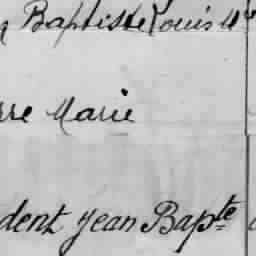 Baptiste Louis
rre Marie
dent Jean Bapte